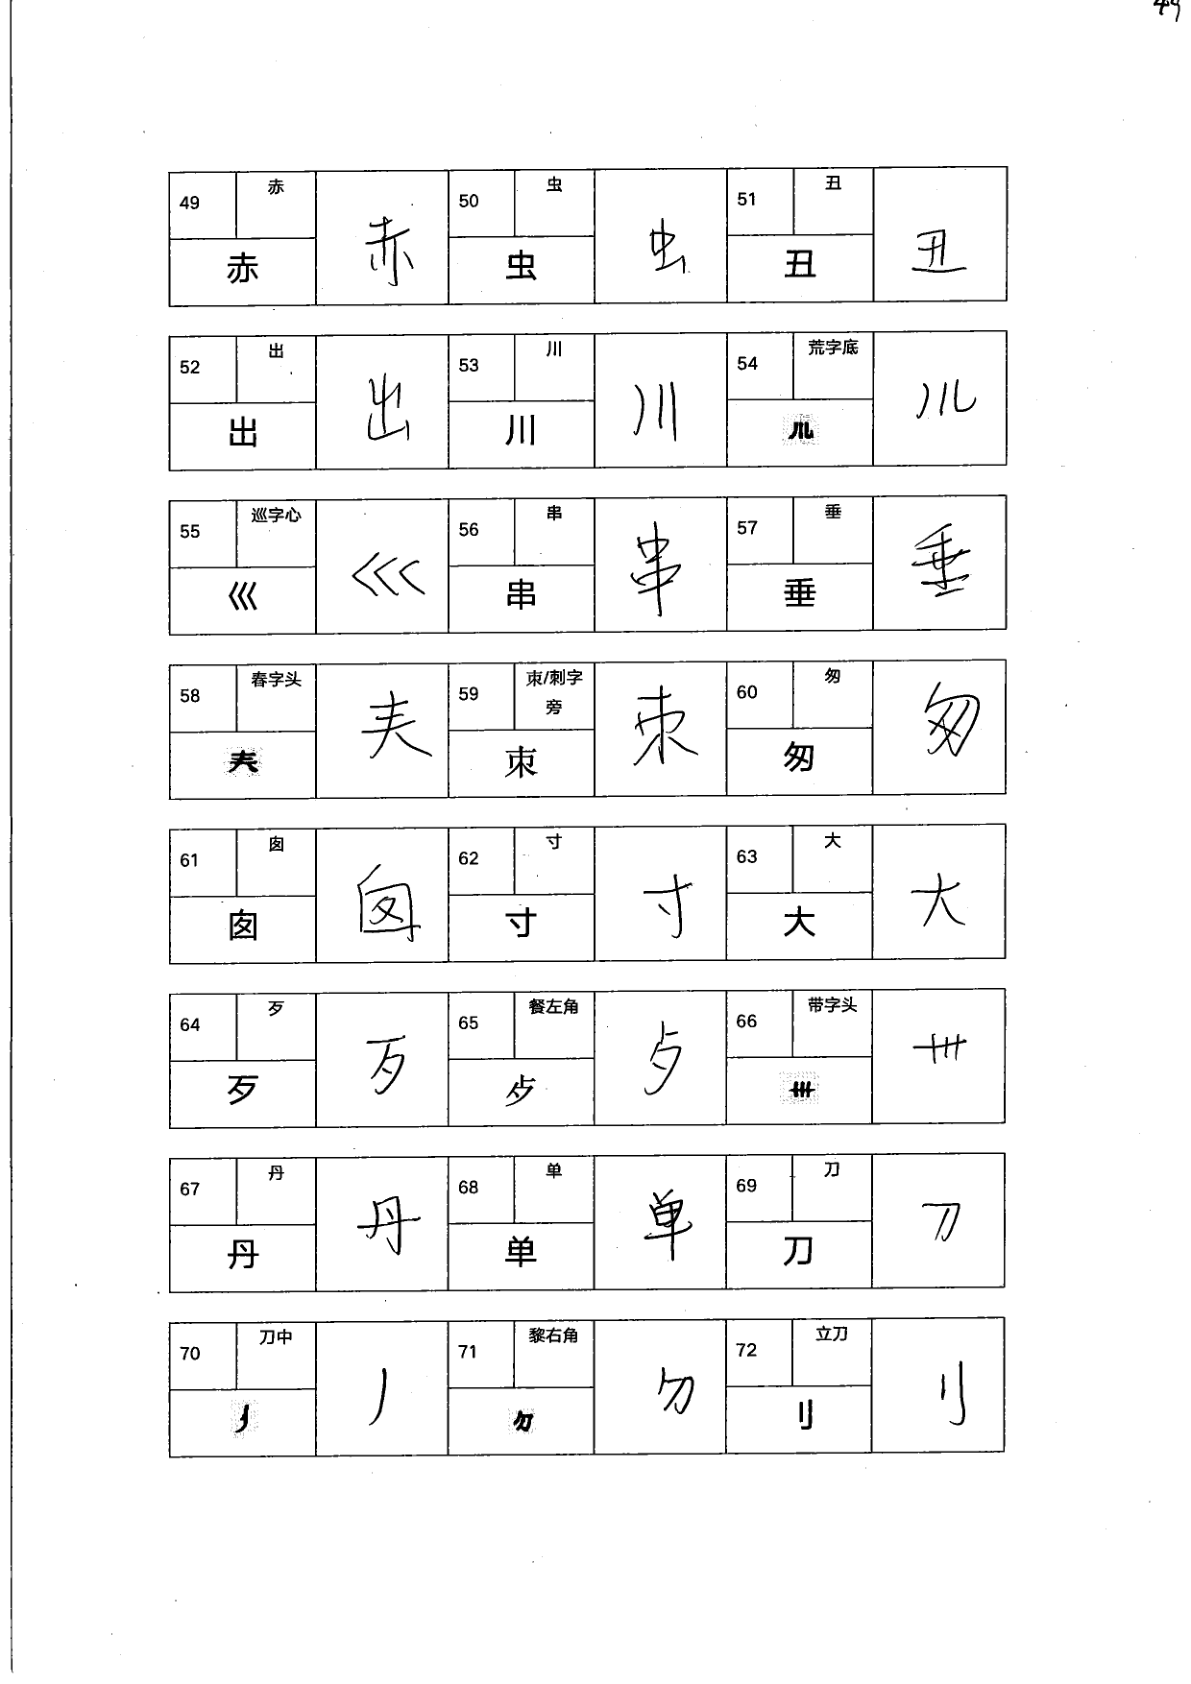 49
49 赤 赤 50 虫 虫 51 丑 丑
赤 虫 丑
52 出 出 53 川 川 54 荒字底 㐬
出 川
55 巡字心 巛 56 串 串 57 垂 垂
巛 串 垂
58 春字头 𡗗 59 朿/刺字旁 朿 60 匆 匆
𡗗 朿 匆
61 囱 囱 62 寸 寸 63 大 大
囱 寸 大
64 歹 歹 65 餐左角 歺 66 带字头 卌
歹 歺 卌
67 丹 丹 68 单 单 69 刀 刀
丹 单 刀
70 刀中 丿 71 黎右角 勿 72 立刀 刂
丿 勿 刂